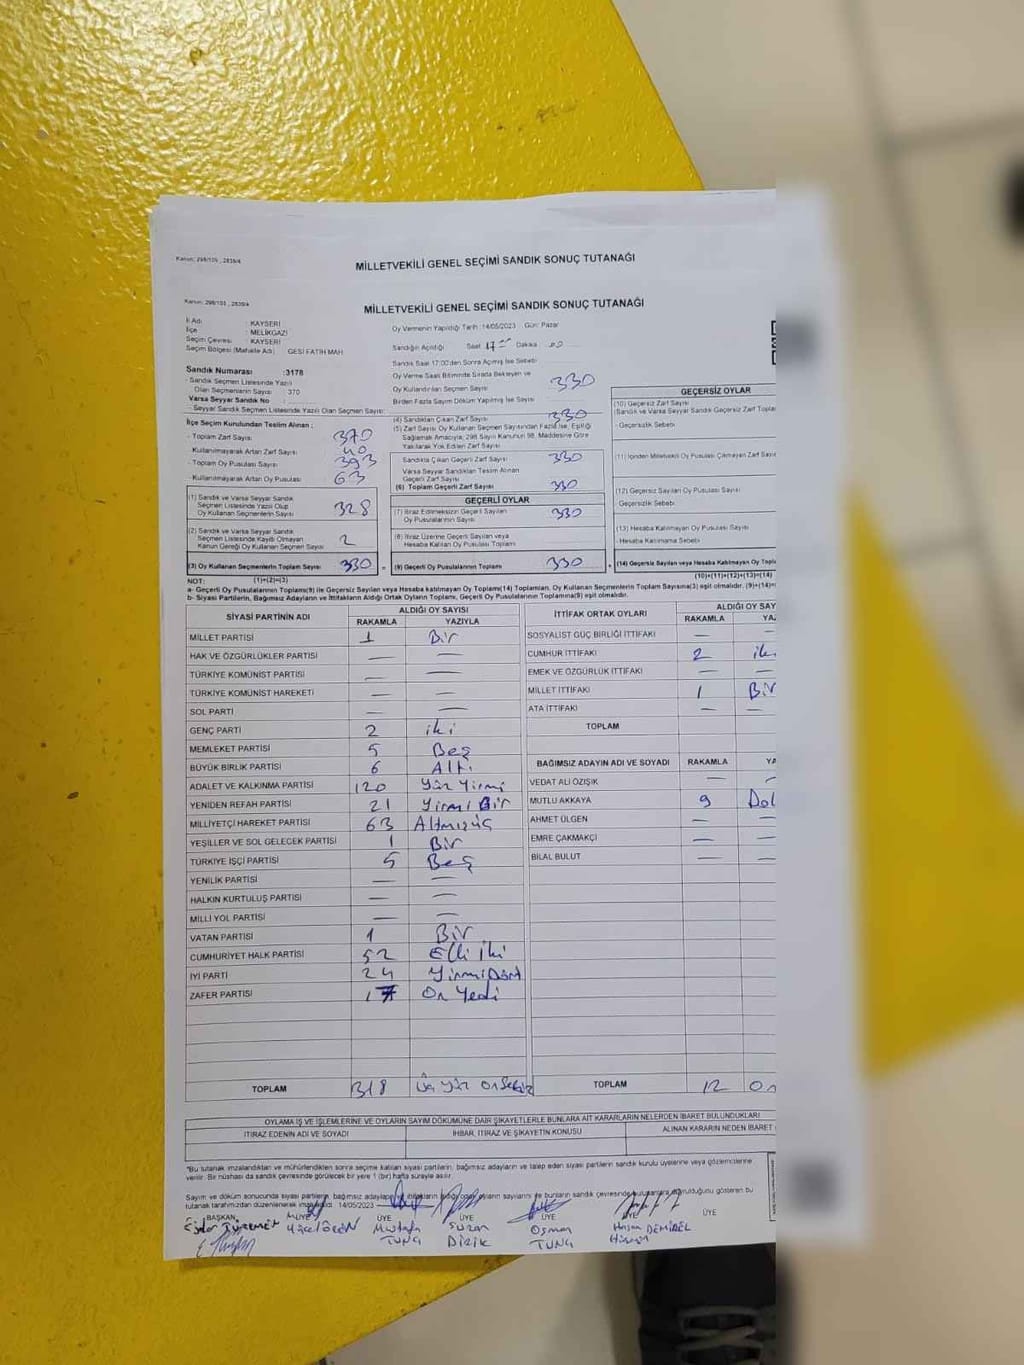 Kanun: 298/105 , 2839/4
MİLLETVEKİLİ GENEL SEÇİMİ SANDIK SONUÇ TUTANAĞI
Kanun: 298/105 , 2839/4
MİLLETVEKİLİ GENEL SEÇİMİ SANDIK SONUÇ TUTANAĞI
İl Adı : KAYSERİ
İlçe : MELİKGAZİ
Seçim Çevresi : KAYSERİ
Seçim Bölgesi (Mahalle Adı) GESİ FATİH MAH
Oy Vermenin Yapıldığı Tarih :14/05/2023 Gün: Pazar
Sandığın Açıldığı Saat 17 Dakika 00
Sandık Saat 17:00'den Sonra Açılmış İse Sebebi
Oy Verme Saati Bitiminde Sırada Bekleyen ve
Oy Kullandırılan Seçmen Sayısı 330
Birden Fazla Sayım Döküm Yapılmış İse Sayısı
Sandık Numarası :3178
- Sandık Seçmen Listesinde Yazılı
Olan Seçmenlerin Sayısı : 370
Varsa Seyyar Sandık No :
- Seyyar Sandık Seçmen Listesinde Yazılı Olan Seçmen Sayısı:
İlçe Seçim Kurulundan Teslim Alınan ;
- Toplam Zarf Sayısı 370
- Kullanılmayarak Artan Zarf Sayısı 40
- Toplam Oy Pusulası Sayısı 393
- Kullanılmayarak Artan Oy Pusulası 63
(1) Sandık ve Varsa Seyyar Sandık
Seçmen Listesinde Yazılı Olup
Oy Kullanan Seçmenlerin Sayısı 328
(2) Sandık ve Varsa Seyyar Sandık
Seçmen Listesinde Kayıtlı Olmayan
Kanun Gereği Oy Kullanan Seçmen Sayısı 2
(3) Oy Kullanan Seçmenlerin Toplam Sayısı 330 =
(4) Sandıktan Çıkan Zarf Sayısı 330
(5) Zarf Sayısı Oy Kullanan Seçmen Sayısından Fazla İse, Eşitliği
Sağlamak Amacıyla; 298 Sayılı Kanunun 98. Maddesine Göre
Yakılarak Yok Edilen Zarf Sayısı
Sandıkta Çıkan Geçerli Zarf Sayısı 330
Varsa Seyyar Sandıktan Teslim Alınan
Geçerli Zarf Sayısı
(6) Toplam Geçerli Zarf Sayısı 330
GEÇERLİ OYLAR
(7) İtiraz Edilmeksizin Geçerli Sayılan
Oy Pusulalarının Sayısı 330
(8) İtiraz Üzerine Geçerli Sayılan veya
Hesaba Katılan Oy Pusulası Toplamı
(9) Geçerli Oy Pusulalarının Toplamı 330 +
GEÇERSİZ OYLAR
(10) Geçersiz Zarf Sayısı
(Sandık ve Varsa Seyyar Sandık Geçersiz Zarf Toplam
- Geçersizlik Sebebi
(11) İçinden Milletvekili Oy Pusulası Çıkmayan Zarf Sayıs
(12) Geçersiz Sayılan Oy Pusulası Sayısı
- Geçersizlik Sebebi
(13) Hesaba Katılmayan Oy Pusulası Sayısı
- Hesaba Katılmama Sebebi
(14) Geçersiz Sayılan veya Hesaba Katılmayan Oy Topl
NOT: (1)+(2)=(3) (10)+(11)+(12)+(13)=(14)
a- Geçerli Oy Pusulalarının Toplamı(9) ile Geçersiz Sayılan veya Hesaba katılmayan Oy Toplamı(14) Toplamları, Oy Kullanan Seçmenlerin Toplam Sayısına(3) eşit olmalıdır. (9)+(14)=
b- Siyasi Partilerin, Bağımsız Adayların ve İttifakların Aldığı Ortak Oyların Toplamı, Geçerli Oy Pusulalarının Toplamına(9) eşit olmalıdır.
SİYASİ PARTİNİN ADI ALDIĞI OY SAYISI
RAKAMLA YAZIYLA
MİLLET PARTİSİ 1 Bir
HAK VE ÖZGÜRLÜKLER PARTİSİ — —
TÜRKİYE KOMÜNİST PARTİSİ — —
TÜRKİYE KOMÜNİST HAREKETİ — —
SOL PARTİ — —
GENÇ PARTİ 2 iki
MEMLEKET PARTİSİ 5 Beş
BÜYÜK BİRLİK PARTİSİ 6 Altı
ADALET VE KALKINMA PARTİSİ 120 Yüz Yirmi
YENİDEN REFAH PARTİSİ 21 Yirmi Bir
MİLLİYETÇİ HAREKET PARTİSİ 63 Altmışüç
YEŞİLLER VE SOL GELECEK PARTİSİ 1 Bir
TÜRKİYE İŞÇİ PARTİSİ 5 Beş
YENİLİK PARTİSİ — —
HALKIN KURTULUŞ PARTİSİ — —
MİLLİ YOL PARTİSİ — —
VATAN PARTİSİ 1 Bir
CUMHURİYET HALK PARTİSİ 52 Elli iki
İYİ PARTİ 24 Yirmi Dört
ZAFER PARTİSİ 17 On Yedi
TOPLAM 318 Üç Yüz On Sekiz
İTTİFAK ORTAK OYLARI ALDIĞI OY SAY
RAKAMLA YAZ
SOSYALİST GÜÇ BİRLİĞİ İTTİFAKI — —
CUMHUR İTTİFAKI 2 iki
EMEK VE ÖZGÜRLÜK İTTİFAKI — —
MİLLET İTTİFAKI 1 Bir
ATA İTTİFAKI — —
TOPLAM
BAĞIMSIZ ADAYIN ADI VE SOYADI RAKAMLA YA
VEDAT ALİ ÖZIŞIK — —
MUTLU AKKAYA 9 Dok
AHMET ÜLGEN — —
EMRE ÇAKMAKÇİ — —
BİLAL BULUT — —
TOPLAM 12 On
OYLAMA İŞ VE İŞLEMLERİNE VE OYLARIN SAYIM DÖKÜMÜNE DAİR ŞİKAYETLERLE BUNLARA AİT KARARLARIN NELERDEN İBARET BULUNDUKLARI
İTİRAZ EDENİN ADI VE SOYADI İHBAR, İTİRAZ VE ŞİKAYETİN KONUSU ALINAN KARARIN NEDEN İBARET
"Bu tutanak imzalandıktan ve mühürlendikten sonra seçime katılan siyasi partilerin, bağımsız adayların ve talep eden siyasi partilerin sandık kurulu üyelerine veya gözlemcilerine
verilir. Bir nüshası da sandık çevresinde görülecek bir yere 1 (bir) hafta süreyle asılır.
Sayım ve döküm sonucunda siyasi partilerin, bağımsız adayların ittifakların aldığı oyların sayılarını ile bunların sandık çevresinde doğruluğunu gösteren bu
tutanak tarafımızdan düzenlenerek 14/05/2023
BAŞKAN ÜYE ÜYE ÜYE ÜYE ÜYE ÜYE
Mustafa TUNÇ
Suzan DİRİK
Osman TUNÇ
Hasan DEMİREL